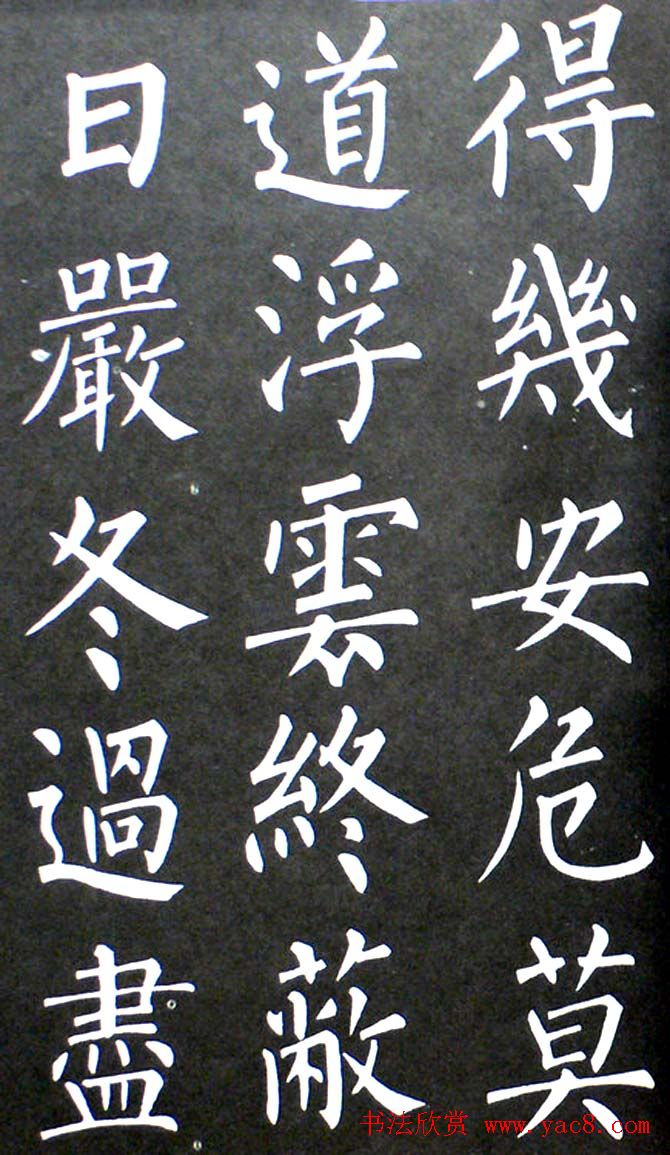 得幾安危莫
道浮雲終蔽
日嚴冬過盡
书法欣赏 www.yac8.com